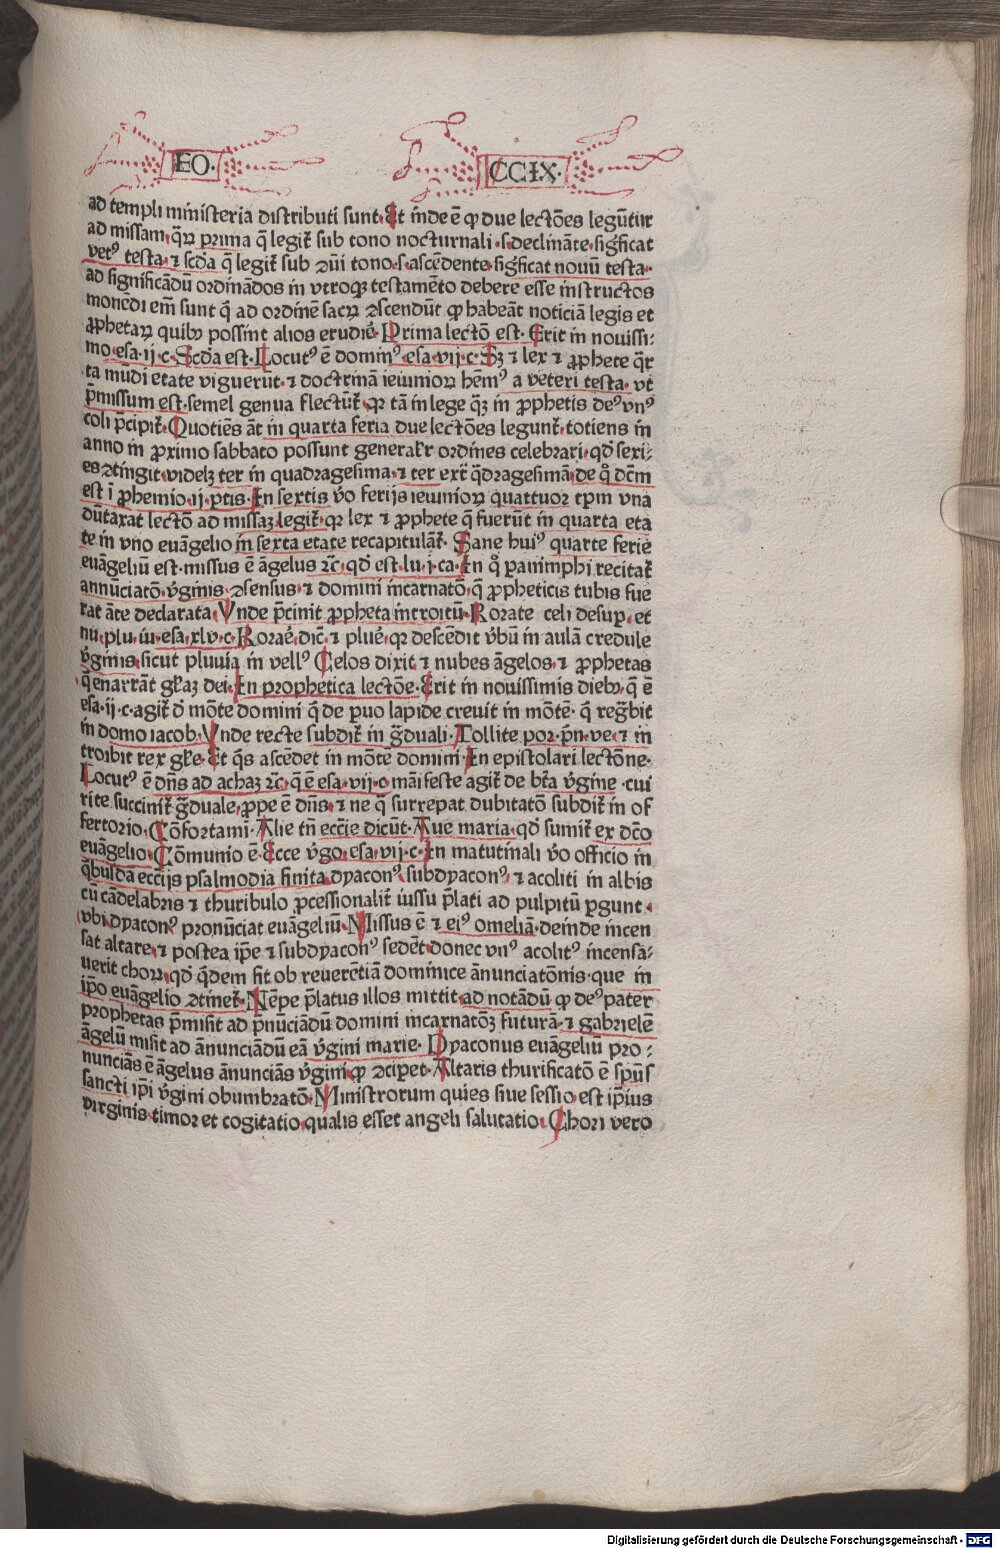 FO. CCIX.
ad templi ministeria distributi sunt. Et inde ē ꝙ due lectōes legūtur
ad missam, qꝝ prima q̄ legit̄ sub tono nocturnali .s. declinãte, sig̃ficat
vetꝰ testa. ⁊ scd̓a q̄ legit̄ sub ꝯūi tono .s. ascēdente, sig̃ficat nouū testa.
ad significādū ordinādos in vtroqꝫ testamēto debere esse instructos
monēdi em̄ sunt q̄ ad ordinē sacꝝ ꝯscendūt ꝙ habeāt noticiā legis et
ꝓphetaꝝ quibꝰ possint alios erudiē. Prima lectō est. Erit in nouissi-
mo. esa. ij. c. Scd̓a est. Locutꝰ ē dominꝰ. esa. vij. c. Sꝫ ⁊ lex ⁊ ꝓphete q̄r
ta mūdi etate viguerūt. ⁊ doctrinā ieiunioꝝ hēmꝰ a veteri testa. vt
p̄missum est. semel genua flectūt̄. qꝛ tā in lege qꝫ in ꝓphetis deꝰ vnꝰ
coli p̄cipit̄. Quotiēs āt in quarta feria due lectōes legunt̄. totiens in
anno in ꝓximo sabbato possunt generalr̄ ordines celebrari. qd̓ sexi-
es ꝯtingit. videlꝫ ter in quadragesima. ⁊ ter extr̄ q̄dragesimā. de q̊ dc̄m
est ī ꝓhemio. ij. ptis. In sextis v̓o ferijs ieiunioꝝ quattuor tp̄m vna
dūtaxat lectō ad missaꝫ legit̄. qꝛ lex ⁊ ꝓphete q̄ fuerūt in quarta eta
te in vno euāgelio in sexta etate recapitulāt̄. Sane huiꝰ quarte ferie
euāgeliū est. missus ē āgelus ⁊c̄. qd̓ est. lu. j. ca. In q̊ paranimphi recitat̄
annūciatō. v̓ginis ꝯsensus. ⁊ domini incarnatō. q̄ ꝓpheticis tubis fue
rat āte declarata. Vnde p̄cinit ꝓpheta introitū. Rorate celi desuꝑ. et
nu. plu. iu. esa. xlv. c. Roraē. dic̄. ⁊ pluē. qꝛ descēdit v̓bū in aulā credule
v̓ginis. sicut pluuia in vellꝰ Celos dixit ⁊ nubes āgelos. ⁊ ꝓphetas
q̄ enarrāt gl̄iaꝫ dei. In prophetica lectōe. Erit in nouissimis diebꝰ. q̄ ē
esa. ij. c. agit̄ d̓ mōte domini q̄ de puo lapide creuit in mōtē. q̄ reg̃bit
in domo iacob. Vnde recte subdit̄ in g̃duali. Tollite por. p̄n. ve. ⁊ in
troibit rex gl̄ie. Et q̄s ascēdet in mōtē domini. In epistolari lectōne.
Locutꝰ ē dn̄s ad achaꝫ ⁊c̄. q̄ ē esa. vij. c. māifeste agit̄ de bt̄a v̓gine. cui
rite succinit̄ g̃duale, ꝓpe ē dn̄s. ⁊ ne q̄ surrepat dubitatō subdit̄ in of
fertorio. Cōfortamī. Alie tn̄ ecc̄ie dicūt. Aue maria. qd̓ sumit̄ ex dc̄o
euāgelio. Cōmunio ē. Ecce v̓go. esa. vij. c. In matutinali v̓o officio in
q̄busdā ecc̄ijs psalmodia finita dyaconꝰ. subdyaconꝰ. ⁊ acoliti in albis
cū cādelabris ⁊ thuribulo ꝓcessionalit̄ iussu p̄lati ad pulpitū ꝑgunt.
vbi dyaconꝰ pronūciat euāgeliū. Missus ē ⁊ eiꝰ omeliā. deinde incen
sat altare. ⁊ postea ip̄e ⁊ subdyaconꝰ sedēt donec vnꝰ acolitꝰ incensa-
uerit choꝝ. qd̓ q̄dem fit ob reuerētiā dominice ānunciatōnis. que in
ip̄o euāgelio ꝯtinet̄. Nēpe p̄latus illos mittit. ad notādū ꝙ deꝰ pater
prophetas p̄misit ad p̄nūciādū domini incarnatōꝫ futurā. ⁊ gabrielē
āgelū misit ad ānunciādū eā v̓gini marie. Dyaconus euāgeliū pro-
nunciās ē āgelus ānuncians v̓gini ꝙ ꝯcipet. Altaris thurificatō ē sp̄us
sancti ip̄i v̓gini obumbratō. Ministrorum quies siue sessio est ip̄ius
virginis timor et cogitatio. qualis esset angeli salutatio. Chori vero
Digitalisierung gefördert durch die Deutsche Forschungsgemeinschaft - DFG